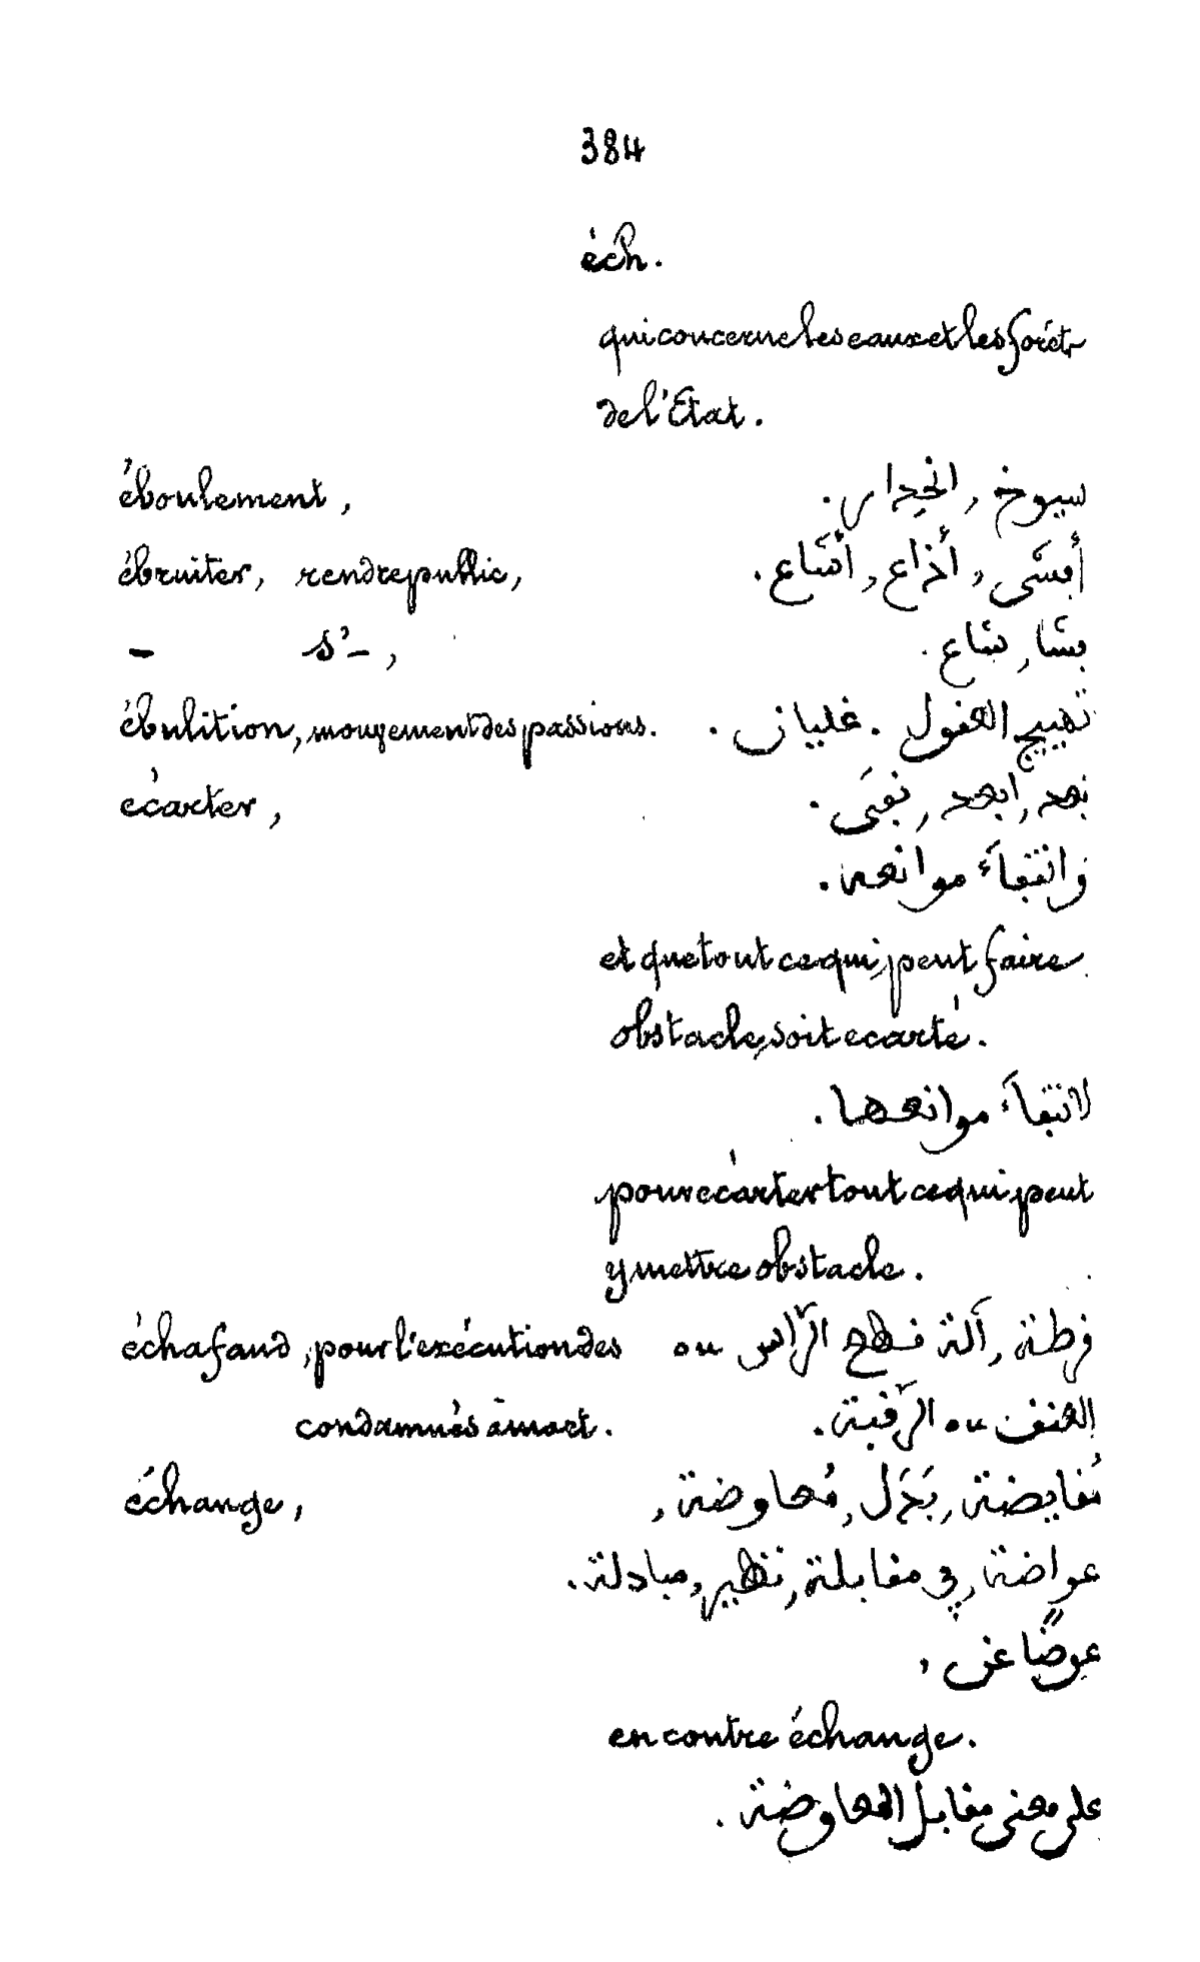 384
éch.
qui concerne les eaux et les forêts
de l'Etat.
éboulement, سيوخ, انجدار.
ébruiter, rendre public, أفشى, أذاع, أشاع.
— s'—, فشا, شاع.
ébulition, mouvement des passions. تهييج العقول. غليان.
écarter, بعد, ابعد, نفى.
وانتفاء موانعه.
et que tout ce qui peut faire
obstacle, soit ecarté.
لانتفاء موانعها.
pour écarter tout ce qui peut
y mettre obstacle.
échafaud, pour l'exécution des فرطنة, آلة قطع الرّاس ou
condamnés à mort. العنق ou الرّقبة.
échange, مُقايضة, بَدَل, مُعاوضة,
عواضة, في مقابلة, نظير, مبادلة.
عوضًا عن,
en contre échange.
على معنى مقابل المعاوضة.